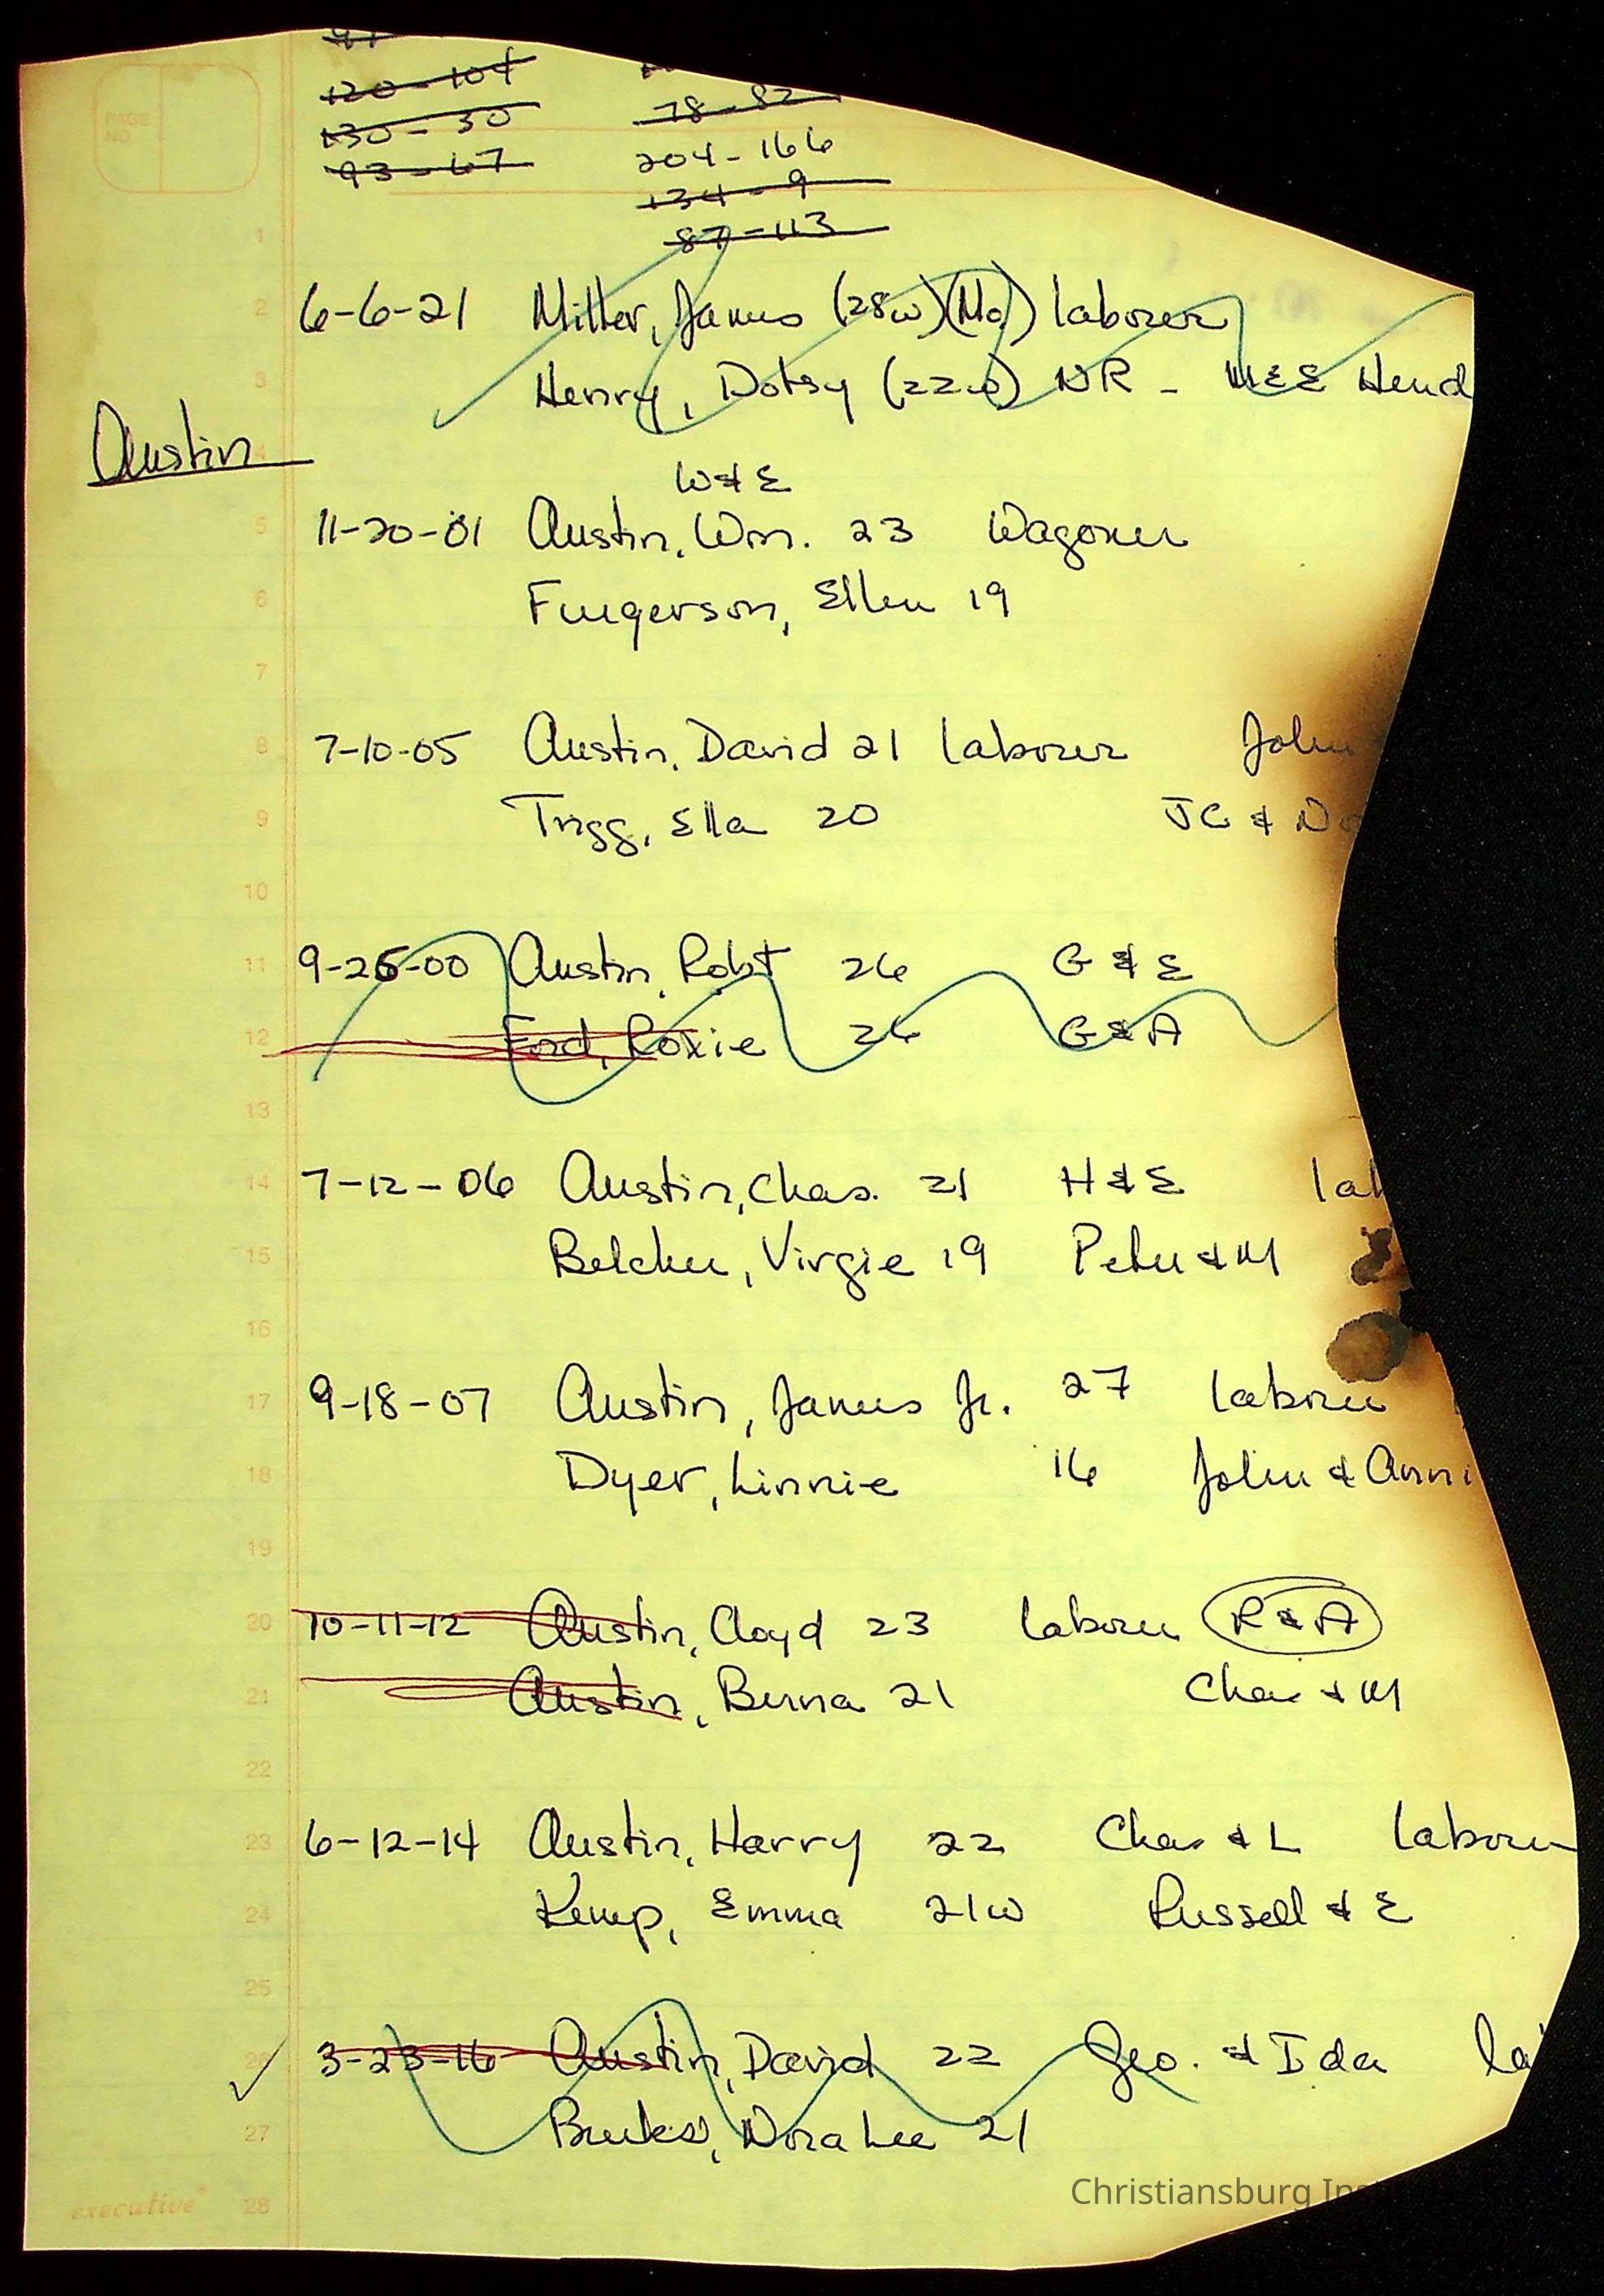 PAGE NO
120-104
130-30
93-67
78-82
204-166
134-9
87-113
6-6-21 Miller, James (28w)(Mo) laborer
Henry, Dotsy (22w) NR - M&E Hend
Austin
W & E
11-20-01 Austin, Wm. 23 Wagoner
Fingerson, Ellen 19
7-10-05 Austin, David 21 laborer John
Trigg, Ella 20 JC & No
9-25-00 Austin, Robt 26 G & E
Ford, Roxie 26 G & A
7-12-06 Austin, Chas. 21 H & E lab
Belcher, Virgie 19 Peter & M
9-18-07 Austin, James Jr. 27 laborer
Dyer, Linnie 16 John & Anni
10-11-12 Austin, Cloyd 23 laborer R & A
Austin, Berna 21 Chas & M
6-12-14 Austin, Harry 22 Chas & L laborer
Kemp, Emma 21w Russell & E
3-23-16 Austin, David 22 Geo. & Ida la
Burks, Nora Lee 21
Christiansburg Inst
executive